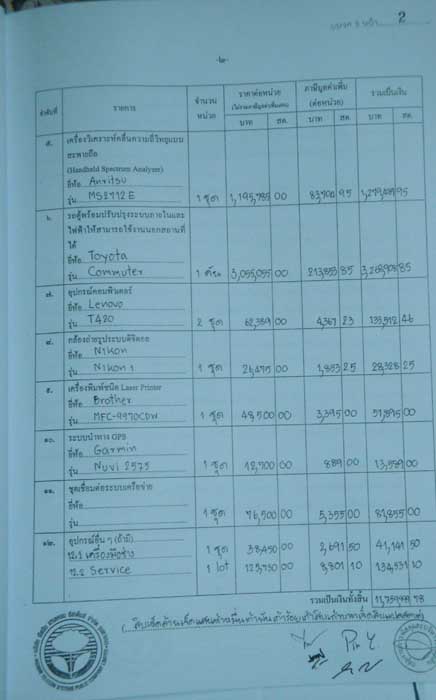 2
-๒-
ลำดับที่ รายการ จำนวนหน่วย ราคาต่อหน่วย (ไม่รวมภาษีมูลค่าเพิ่ม) ภาษีมูลค่าเพิ่ม (ต่อหน่วย) รวมเป็นเงิน
บาท สต. บาท สต. บาท สต.
๕. เครื่องวิเคราะห์คลื่นความถี่วิทยุแบบ
สะพายถือ
(Handheld Spectrum Analyzer)
ยี่ห้อ Anritsu
รุ่น MS2712E 1 ชุด 1,195,785 00 95 95
๖. รถตู้พร้อมปรับปรุงระบบภายในและ
ไฟฟ้าให้สามารถใช้งานนอกสถานที่
ได้
ยี่ห้อ Toyota
รุ่น Commuter 1 คัน 3,055,055 00 213,853 85 3,268,908 85
๗. อุปกรณ์คอมพิวเตอร์
ยี่ห้อ Lenovo
รุ่น T420 2 ชุด 62,389 00 4,367 23 133,512 46
๘. กล้องถ่ายรูประบบดิจิตอล
ยี่ห้อ Nikon
รุ่น Nikon 1 1 ชุด 26,475 00 1,853 25 28,328 25
๙. เครื่องพิมพ์ชนิด Laser Printer
ยี่ห้อ Brother
รุ่น MFC-9970CDW 1 ชุด 48,500 00 3,395 00 51,895 00
๑๐. ระบบนำทาง GPS
ยี่ห้อ Garmin
รุ่น Nuvi 2575 1 ชุด 12,700 00 889 00 13,589 00
๑๑. ชุดเชื่อมต่อระบบเครือข่าย
ยี่ห้อ
รุ่น 1 ชุด 76,500 00 5,355 00 81,855 00
๑๒. อุปกรณ์อื่น ๆ (ถ้ามี)
12.1 เครื่องมือช่าง 1 ชุด 38,450 00 2,691 50 41,141 50
12.2 Service 1 lot 125,730 00 8,801 10 134,531 10
รวมเป็นเงินทั้งสิ้น 78